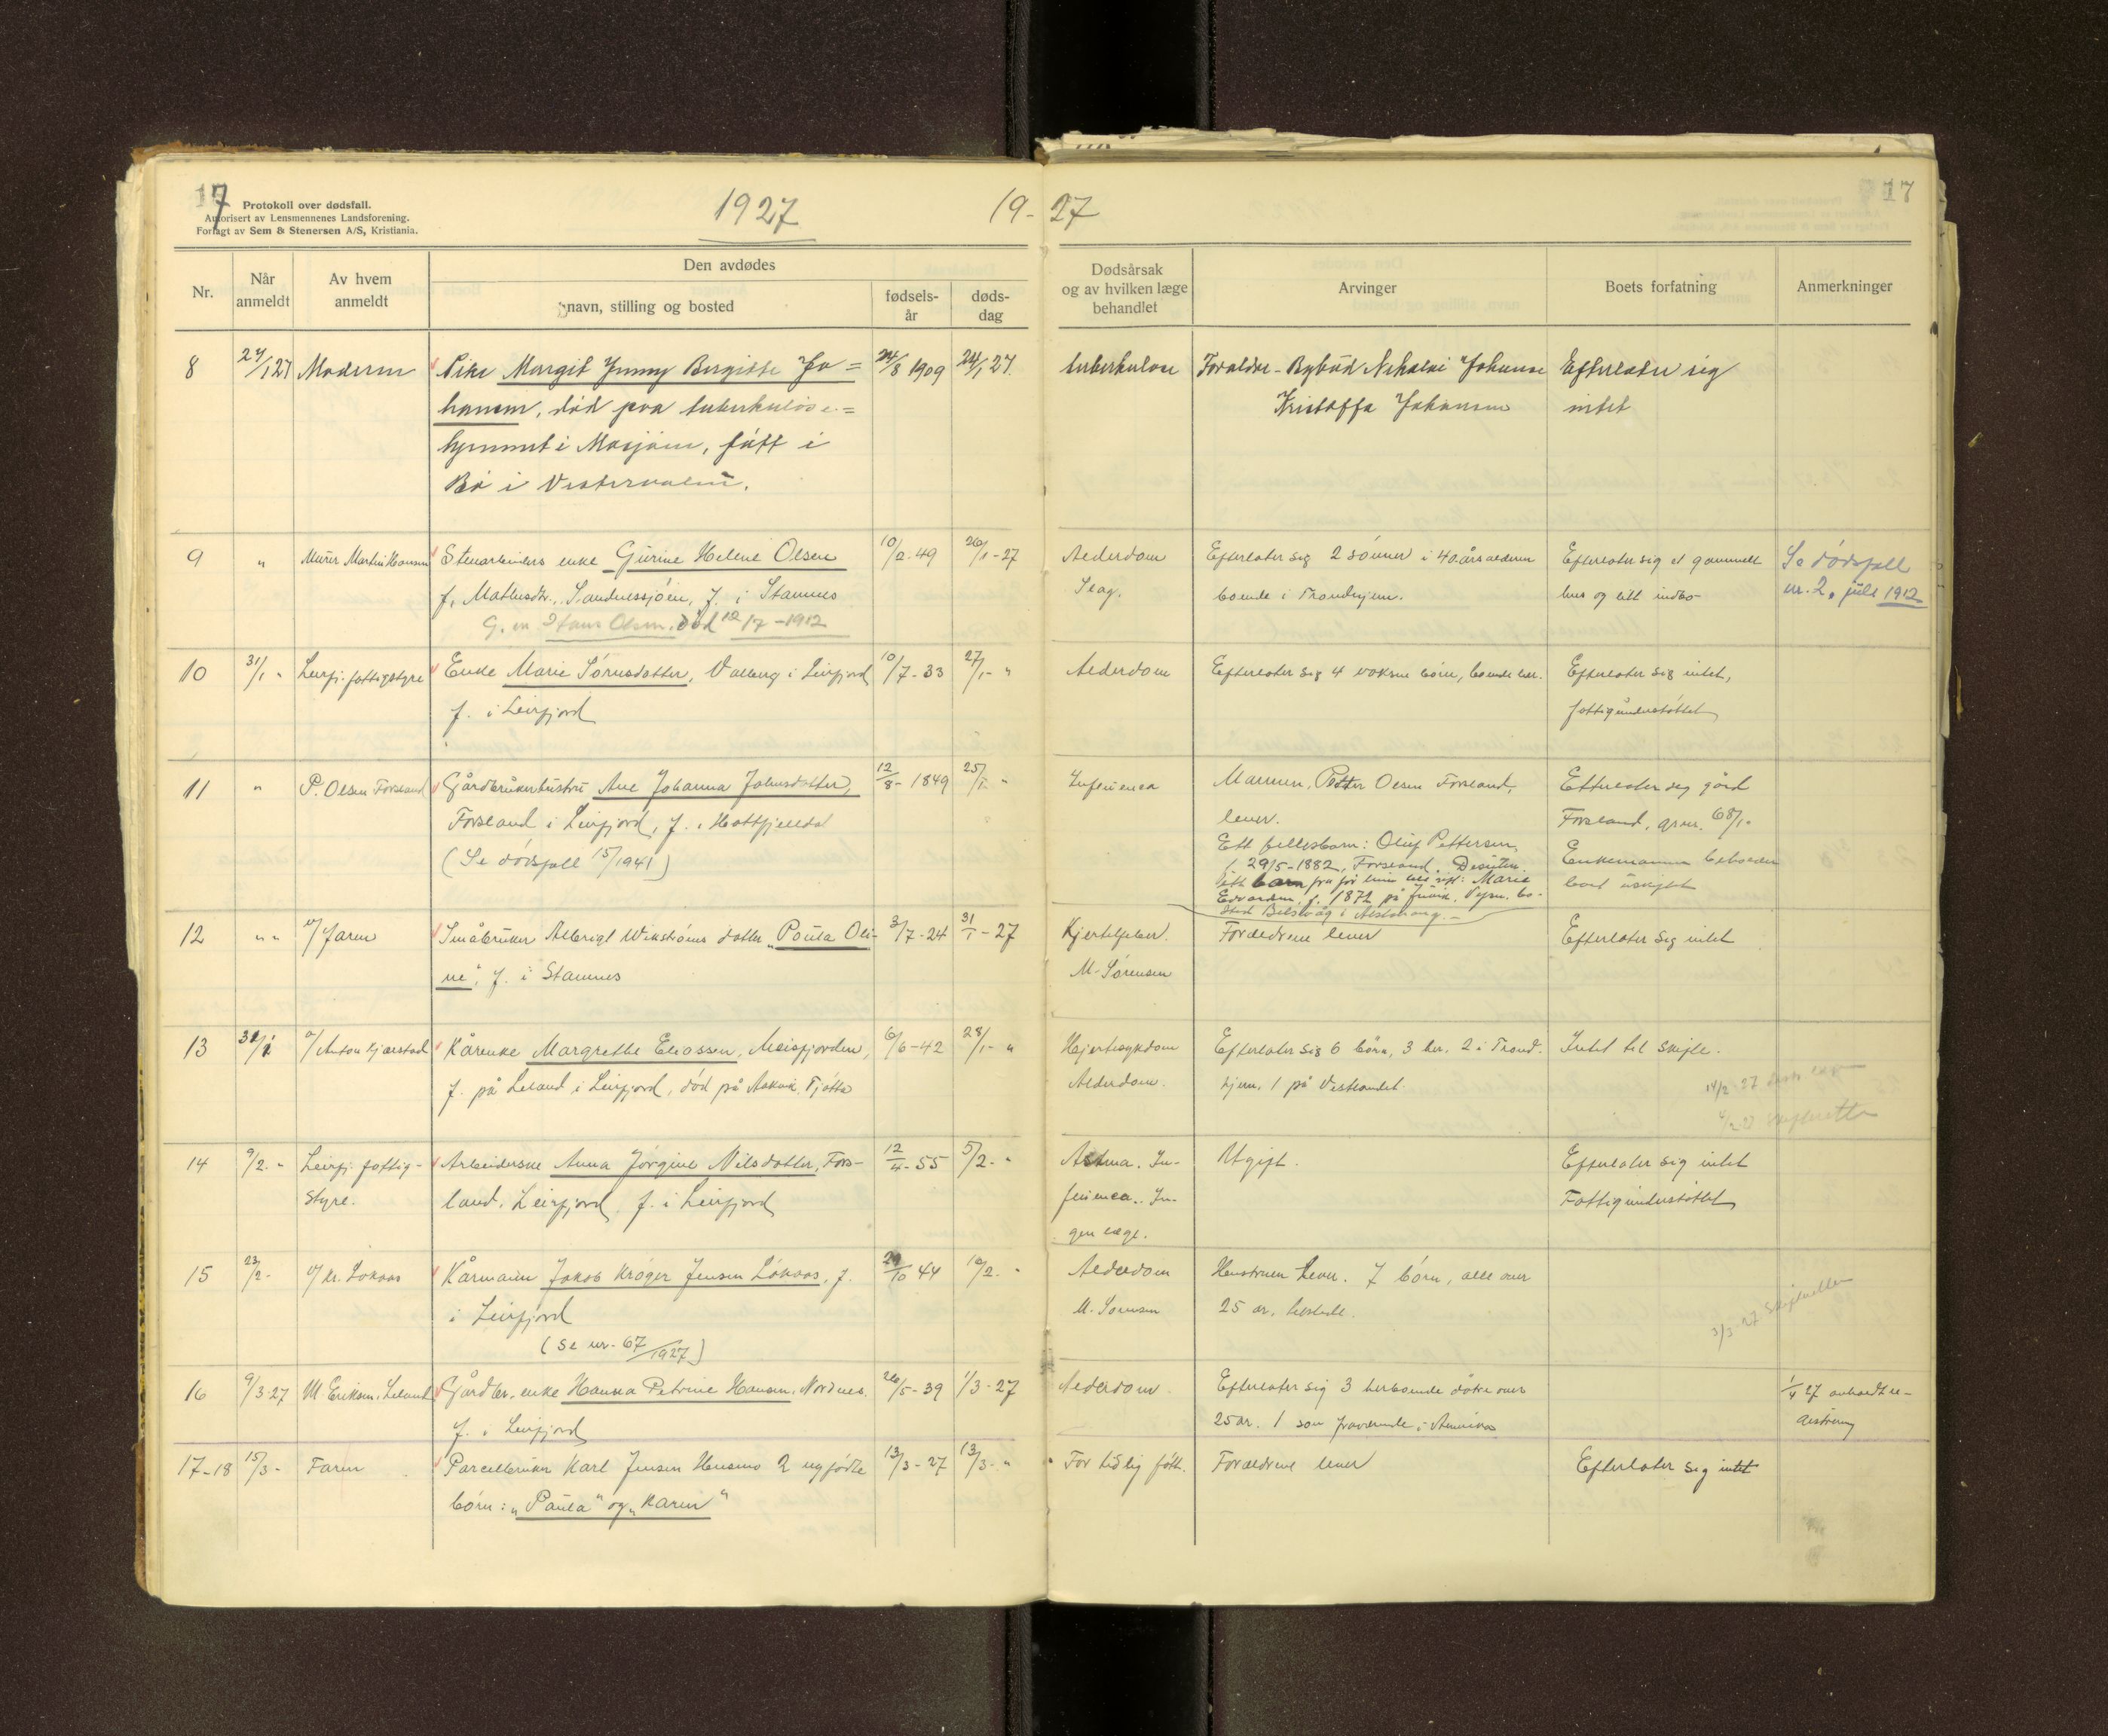 17
Protokoll over dødsfall.
Autorisert av Lensmennenes Landsforening.
Forlagt av Sem & Stenersen A/S, Kristiania.
1927
19-27
17
Nr.
Når anmeldt
Av hvem anmeldt
Den avdødes
navn, stilling og bosted
fødsels-år
døds-dag
Dødsårsak og av hvilken læge behandlet
Arvinger
Boets forfatning
Anmerkninger
8 Moderen Pike Margit Jenny Birgitte Jo= 24/8 1909 24/1 27 tuberkulose Forældre - Bybud Nikolai Johanse Efterlater sig
hansen, død paa tuberkulose= Kristoffa Johansen intet
hjemmet i Mosjøen, født i
Bø i Vesteraalen.
9 " Murer Martin Hansen Stenarbeiders enke Gurine Helene Olsen 10/2-49 26/1-27 Alderdom Efterlater sig 2 sønner i 40 årsalderen Efterlater sig et gammelt Se dødsfall
f. Mathisdtr., Sandnessjøen, f. i Stamnes Slag. boende i Trondhjem. hus og litt indbo nr. 2, juli 1912
G. m. Hans Olsen, død 12/7-1912
10 31/1 " Leirfj. fattigstyre Enke Marie Sørensdatter, Valberg i Leirfjord 10/7-33 27/1- " Alderdom Efterlater sig 4 voksne børn, boende her. Efterlater sig intet,
f. i Leirfjord fattigunderstøttet
11 " P. Olsen Forsland Gårdbrukerhustru Ane Johanna Johnsdatter, 12/8-1849 25/1 " Influenca Mannen, Petter Olsen Forsland, Efterlater sig gård
Forsland i Leirfjord, f. i Hattfjelldal lever. Forsland, gnr. 68/1.
(Se dødsfall 15/1941) Ett fellesbarn: Oluf Pettersen, Enkemannen beholder
f. 29/5-1882, Forsland. Desuten boet uskiftet
ett barn fra før hun ble gift: Marie
Edvardsen, f. 1872 på Juvik, Vefsn, bo-
sted Belsvåg i Alstahaug.
12 " " v/ Faren Småbruker Albrigt Wikstrøms datter „Paula Oli- 3/7-24 31/1-27 Kjertelfeber. Forældrene lever Efterlater sig intet
ne", f. i Stamnes M. Sørensen
13 31/1 v/ Anton Kjærstad Kårenke Margrethe Eliassen, Meisfjorden, 6/6-42 28/1- " Hjertesykdom Efterlater sig 6 børn, 3 her, 2 i Trond- Intet til skifte.
f. på Leland i Leirfjord, død på Aakvik, Tjøtta Alderdom. hjem, 1 på Vestlandet.
14 9/2- " Leirfj. fattig- Arbeiderske Anna Jørgine Nilsdatter, Fors- 12/4-55 5/2- " Astma. In- Ugift. Efterlater sig intet
styre. land, Leirfjord, f. i Leirfjord fluenca. In- Fattigunderstøttet
gen læge.
15 23/2- v/ Kr. Løkaas Kårmann Jakob Krøger Jensen Løkaas, f. 29/10 44 10/2- " Alderdom Hustruen lever. 7 børn, alle over
i Leirfjord M. Sørensen 25 år, tilstede. 3/3-27
(Se nr. 67/1927)
16 9/3-27 M. Eriksen, Leland Gårdbr. enke Hanna Petrine Hansen, Nordnes. 26/5-39 1/3-27 Alderdom. Efterlater sig 3 herboende døtre over 1/4 27 anholdt re-
f. i Leirfjord 25 år. 1 søn fraværende i Amerika gistrering
17-18 15/3- Faren Parcelbruker Karl Jensen Husmo 2 nyfødte 13/3-27 13/3- " For tidlig født. Forældrene lever Efterlater sig intet
børn: „Paula" og „Karin"